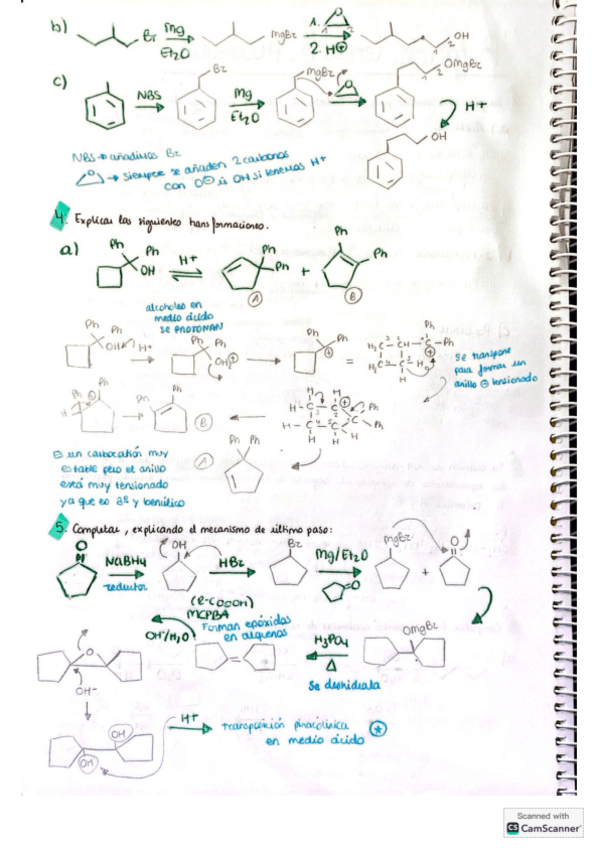 b) Br Mg Et₂O MgBr 1. O 2. H⊕ 1 2 OH
c) NBS Br Mg Et₂O MgBr O 1 2 OMgBr
H+
OH
NBS → añadimos Br
O → siempre se añaden 2 carbonos
con O⊖ ú OH si tenemos H+
4. Explicar las siguientes transformaciones.
a) Ph Ph OH H+ Ph Ph + Ph Ph
A B
alcoholes en
medio ácido
se PROTONAN
Ph Ph OH H+ Ph Ph OH₂⊕ Ph Ph ⊕ = H₂C CH C Ph Ph ⊕ H₂C C H H
se transpone
para formar un
anillo ⊖ tensionado
Ph ⊕ Ph H Ph Ph B H C C C C C Ph Ph ⊕ H
Es un carbocatión muy
estable pero el anillo
está muy tensionado
ya que es 3º y bencílico
A Ph Ph
5. Completar, explicando el mecanismo de último paso:
O NaBH₄ OH HBr Br Mg/Et₂O MgBr + O
reductor
O
(R-COOOH)
MCPBA
Forman epóxidos
en alquenos
OH⁻/H₂O
H₃PO₄
Δ
OMgBr
Se deshidrata
O
OH-
OH
OH
H+
transposición pinacolínica
en medio ácido *
Scanned with
CS CamScanner